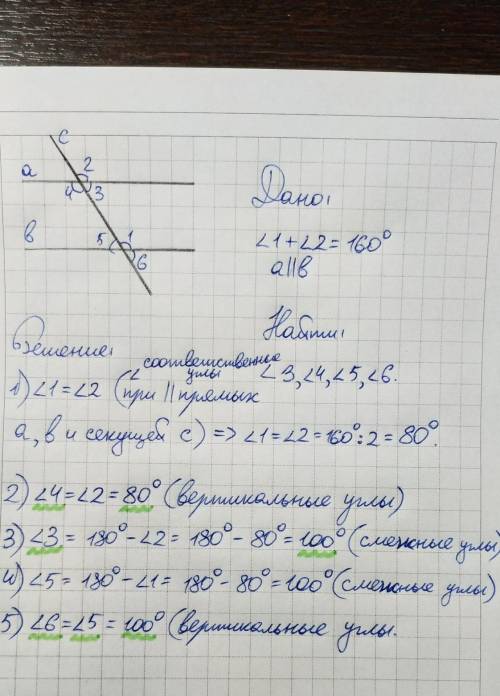 c
a
2
4 3
b
5 1
6
Дано:
∠1+∠2=160°
a||b
Найти:
∠3,∠4,∠5,∠6.
Решение:
1) ∠1=∠2 (∠ соответственные углы
при || прямых
a, b и секущей c) => ∠1=∠2=160°:2=80°.
2) ∠4=∠2=80° (вертикальные углы)
3) ∠3=180°-∠2=180°-80°=100° (смежные углы)
4) ∠5=180°-∠1=180°-80°=100° (смежные углы)
5) ∠6=∠5=100° (вертикальные углы.